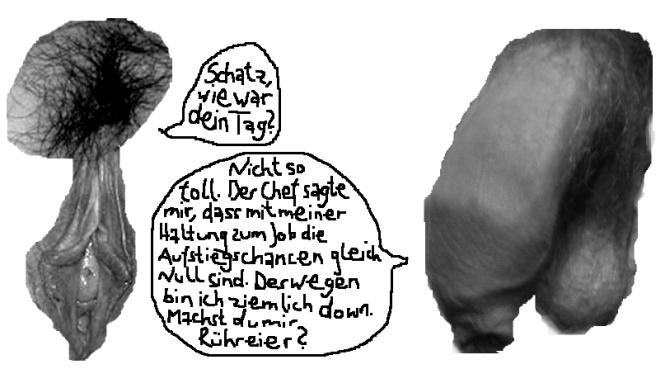 Schatz,
wie war
dein Tag?
Nicht so
toll. Der Chef sagte
mir, dass mit meiner
Haltung zum Job die
Aufstiegschancen gleich
Null sind. Deswegen
bin ich ziemlich down.
Machst du mir
Rühreier?